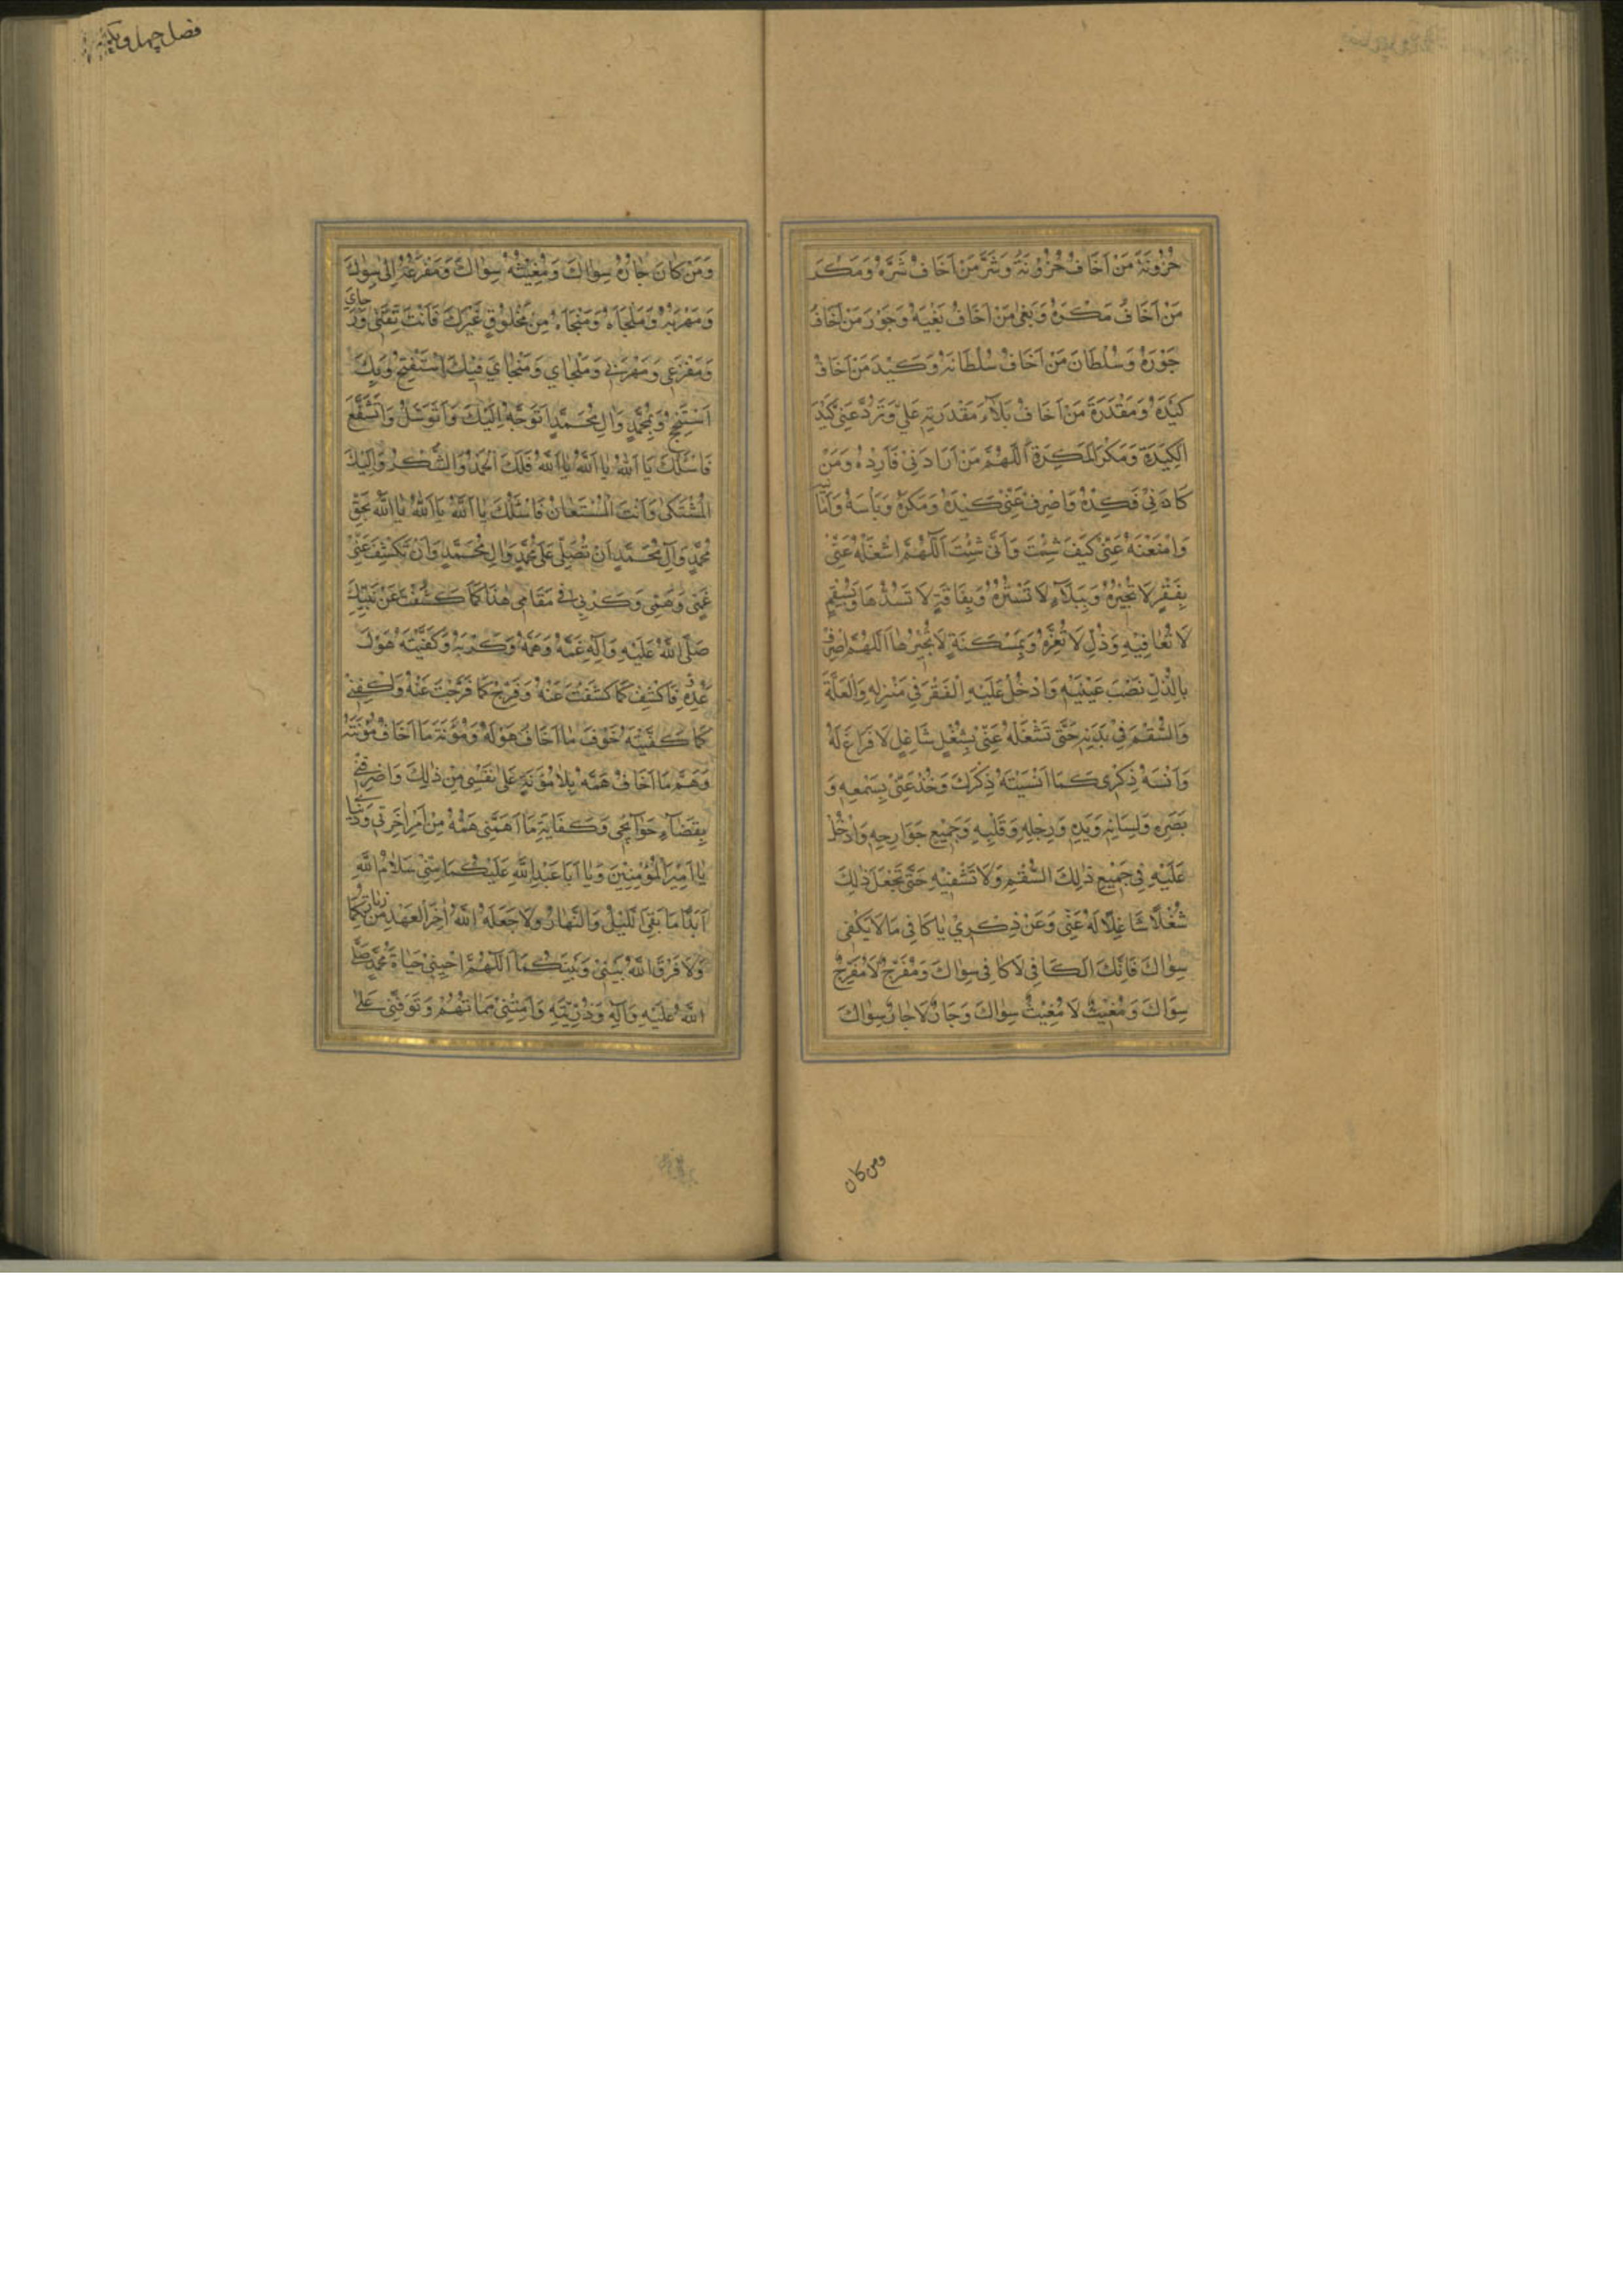 حُزُونَةَ مَنْ اَخَافُ حُزُونَتَهُ وَشَرَّ مَنْ اَخَافُ شَرَّهُ وَمَكْرَ
مَنْ اَخَافُ مَكْرَهُ وَبَغْىَ مَنْ اَخَافُ بَغْيَهُ وَجَوْرَ مَنْ اَخَافُ
جَوْرَهُ وَسُلْطَانَ مَنْ اَخَافُ سُلْطَانَهُ وَكَيْدَ مَنْ اَخَافُ
كَيْدَهُ وَمَقْدَرَةَ مَنْ اَخَافُ بَلَآءَ مَقْدَرَتِهِ عَلَيَّ وَتَرُدَّ عَنّى كَيْدَ
الْكَيَدَةِ وَمَكْرَ الْمَكَرَةِ اَللّهُمَّ مَنْ اَرَادَنِيْ فَاَرِدْهُ وَمَنْ
كَادَنِيْ فَكِدْهُ وَاصْرِفْ عَنّيْ كَيْدَهُ وَمَكْرَهُ وَبَاْسَهُ وَاَمَانِيَّهُ
وَامْنَعْهُ عَنّيْ كَيْفَ شِئْتَ وَاَنّى شِئْتَ اَللّهُمَّ اشْغَلْهُ عَنّيْ
بِفَقْرٍ لَا تَجْبُرُهُ وَبِبَلَآءٍ لَا تَسْتُرُهُ وَبِفَاقَةٍ لَا تَسُدُّهَا وَبِسُقْمٍ
لَا تُعَافِيْهِ وَذُلٍّ لَا تُعِزُّهُ وَبِمَسْكَنَةٍ لَا تَجْبُرُهَا اَللّهُمَّ اضْرِبْ
بِالذُّلِّ نَصْبَ عَيْنَيْهِ وَادْخُلْ عَلَيْهِ الْفَقْرَ فِيْ مَنْزِلِهِ وَالْعِلَّةَ
وَالسُّقْمَ فِيْ بَدَنِهِ حَتّى تَشْغَلَهُ عَنّيْ بِشُغْلٍ شَاغِلٍ لَا فَرَاغَ لَهُ
وَاَنْسِهُ ذِكْرِى كَمَا اَنْسَيْتَهُ ذِكْرَكَ وَخُذْ عَنّيْ بِسَمْعِهِ وَ
بَصَرِهِ وَلِسَانِهِ وَيَدِهِ وَرِجْلِهِ وَقَلْبِهِ وَجَمِيْعِ جَوَارِحِهِ وَادْخُلْ
عَلَيْهِ فِيْ جَمِيْعِ ذلِكَ السُّقْمَ وَلَا تَشْفِيْهِ حَتّى تَجْعَلَ ذلِكَ
شُغْلًا شَاغِلًا لَهُ عَنّيْ وَعَنْ ذِكْرِيْ يَا كَافِى مَا لَا يَكْفِى
سِوَاكَ فَاِنَّكَ الْكَافِى لَا كَافِىَ سِوَاكَ وَمُفَرِّجٌ لَا مُفَرِّجَ
سِوَاكَ وَمُغِيْثٌ لَا مُغِيْثَ سِوَاكَ وَجَارٌ لَا جَارَ سِوَاكَ
ومن كان
فصل چهل و
وَمَنْ كَانَ جَارُهُ سِوَاكَ وَمُغِيْثُهُ سِوَاكَ وَمَفْزَعُهُ اِلى سِوَاكَ
وَمَهْرَبُهُ وَمَلْجَاَهُ وَمَنْجَاهُ مِنْ مَخْلُوْقٍ غَيْرِكَ فَاَنْتَ ثِقَتىْ وَرَجَائِى
وَمَفْزَعِى وَمَهْرَبِى وَمَلْجَاىَ وَمَنْجَاىَ فَبِكَ اَسْتَفْتِحُ وَبِكَ
اَسْتَنْجِحُ وَبِمُحَمَّدٍ وَالِ مُحَمَّدٍ اَتَوَجَّهُ اِلَيْكَ وَاَتَوَسَّلُ وَاَتَشَفَّعُ
فَاَسْئَلُكَ يَا اَللّهُ يَا اَللّهُ يَا اَللّهُ فَلَكَ الْحَمْدُ وَالشُّكْرُ وَاِلَيْكَ
الْمُشْتَكى وَاَنْتَ الْمُسْتَعَانُ فَاَسْئَلُكَ يَا اَللّهُ يَا اَللّهُ يَا اَللّهُ بِحَقِّ
مُحَمَّدٍ وَآلِ مُحَمَّدٍ اَنْ تُصَلِّىَ عَلى مُحَمَّدٍ وَالِ مُحَمَّدٍ وَاَنْ تَكْشِفَ عَنّيْ
غَمّى وَهَمّى وَكَرْبِى فِى مَقَامِى هذَا كَمَا كَشَفْتَ عَنْ نَبِيِّكَ
صَلَّى اللّهُ عَلَيْهِ وَآلِهِ غَمَّهُ وَهَمَّهُ وَكَرْبَهُ وَكَفَيْتَهُ هَوْلَ
عَدُوِّهِ فَاكْشِفْ كَمَا كَشَفْتَ عَنْهُ وَفَرِّجْ كَمَا فَرَّجْتَ عَنْهُ وَاكْفِنِىْ
كَمَا كَفَيْتَهُ خَوْفَ مَا اَخَافُ هَوْلَهُ وَمَؤُنَةَ مَا اَخَافُ مَؤُنَتَهُ
وَهَمَّ مَا اَخَافُ هَمَّهُ بِلَا مَؤُنَةٍ عَلى نَفْسِى مِنْ ذلِكَ وَاصْرِفْنِى
بِقَضَآءِ حَوَآئِجِى وَكِفَايَةِ مَا اَهَمَّنِى هَمُّهُ مِنْ اَمْرِ اخِرَتِى وَدُنْيَاىَ
يَا اَمِيْرَ الْمُؤْمِنِيْنَ وَيَا اَبَا عَبْدِ اللّهِ عَلَيْكُمَا مِنّى سَلَامُ اللّهِ
اَبَدًا مَا بَقِىَ اللَّيْلُ وَالنَّهَارُ وَلَا جَعَلَهُ اللّهُ اخِرَ الْعَهْدِ مِنْ زِيَارَتِكُمَا
وَلَا فَرَّقَ اللّهُ بَيْنِىْ وَبَيْنَكُمَا اَللّهُمَّ اَحْيِنِىْ حَيَاةَ مُحَمَّدٍ صَلَّى
اللّهُ عَلَيْهِ وَآلِهِ وَذُرِّيَّتِهِ وَاَمِتْنِىْ مَمَاتَهُمْ وَتَوَفَّنِى عَلى